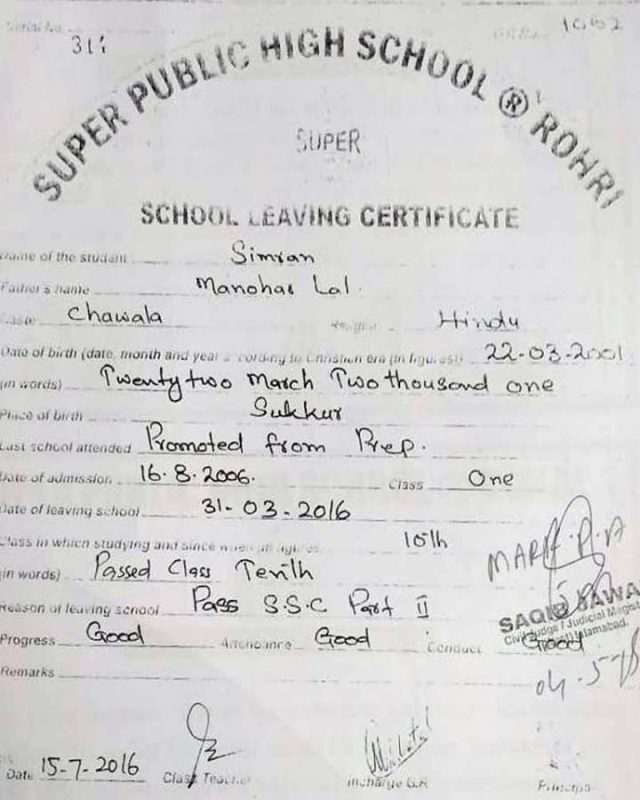 Serial No. 311
G.R.No. 1052
SUPER PUBLIC HIGH SCHOOL ® ROHRI
SUPER
SCHOOL LEAVING CERTIFICATE
Name of the student Simran
Father's name Manohar Lal.
Caste Chawala Hindu
Date of birth (date, month and year according to Christian era (in figures) 22-03-2001
(in words) Twenty two March Two thousand one
Place of birth Sukkur
Last school attended Promoted from Prep.
Date of admission 16.8.2006. Class One
Date of leaving school 31-03-2016
Class in which studying and since when 10th
(in words) Passed Class Tenth
MARK P.A
Reason of leaving school Pass S.S.C Part II
SAQIB JAWA
Civil Judge / Judicial Magis
Islamabad.
Progress Good Attendance Good Conduct Good
Remarks
Date 15-7-2016 Class Teacher incharge G.R Principa